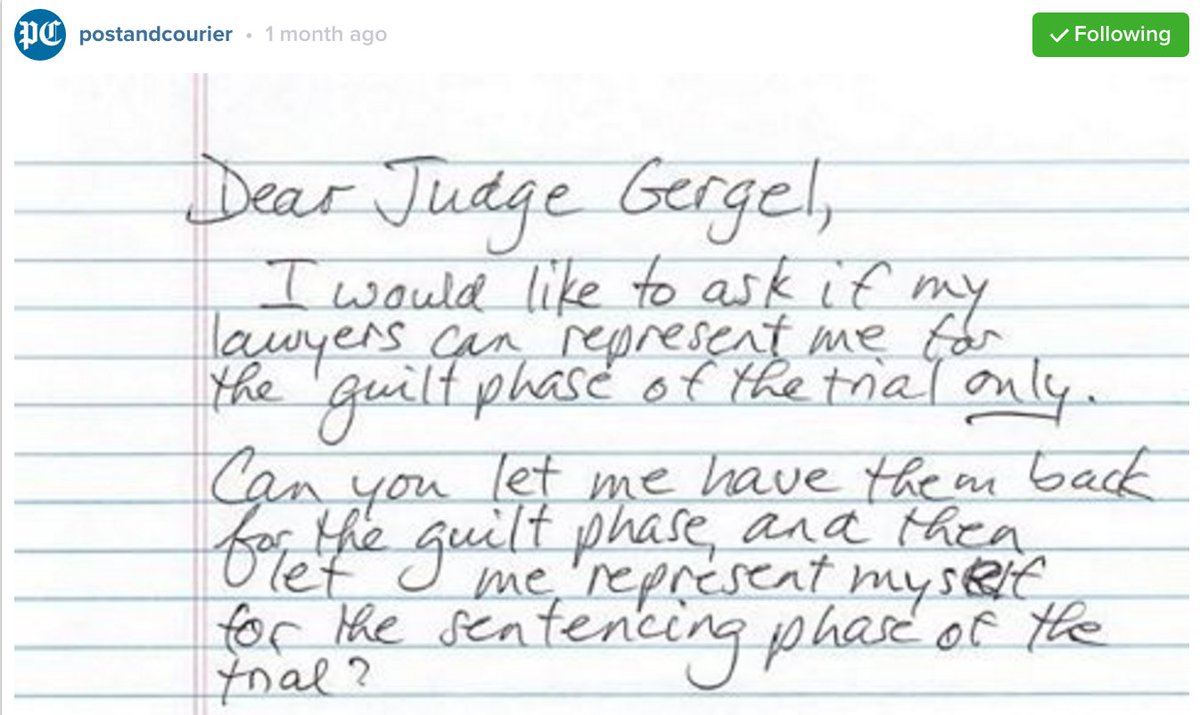 PC postandcourier • 1 month ago ✓ Following
Dear Judge Gergel,
I would like to ask if my
lawyers can represent me for
the guilt phase of the trial only.
Can you let me have them back
for the guilt phase, and then
let me represent myself
for the sentencing phase of the
trial?